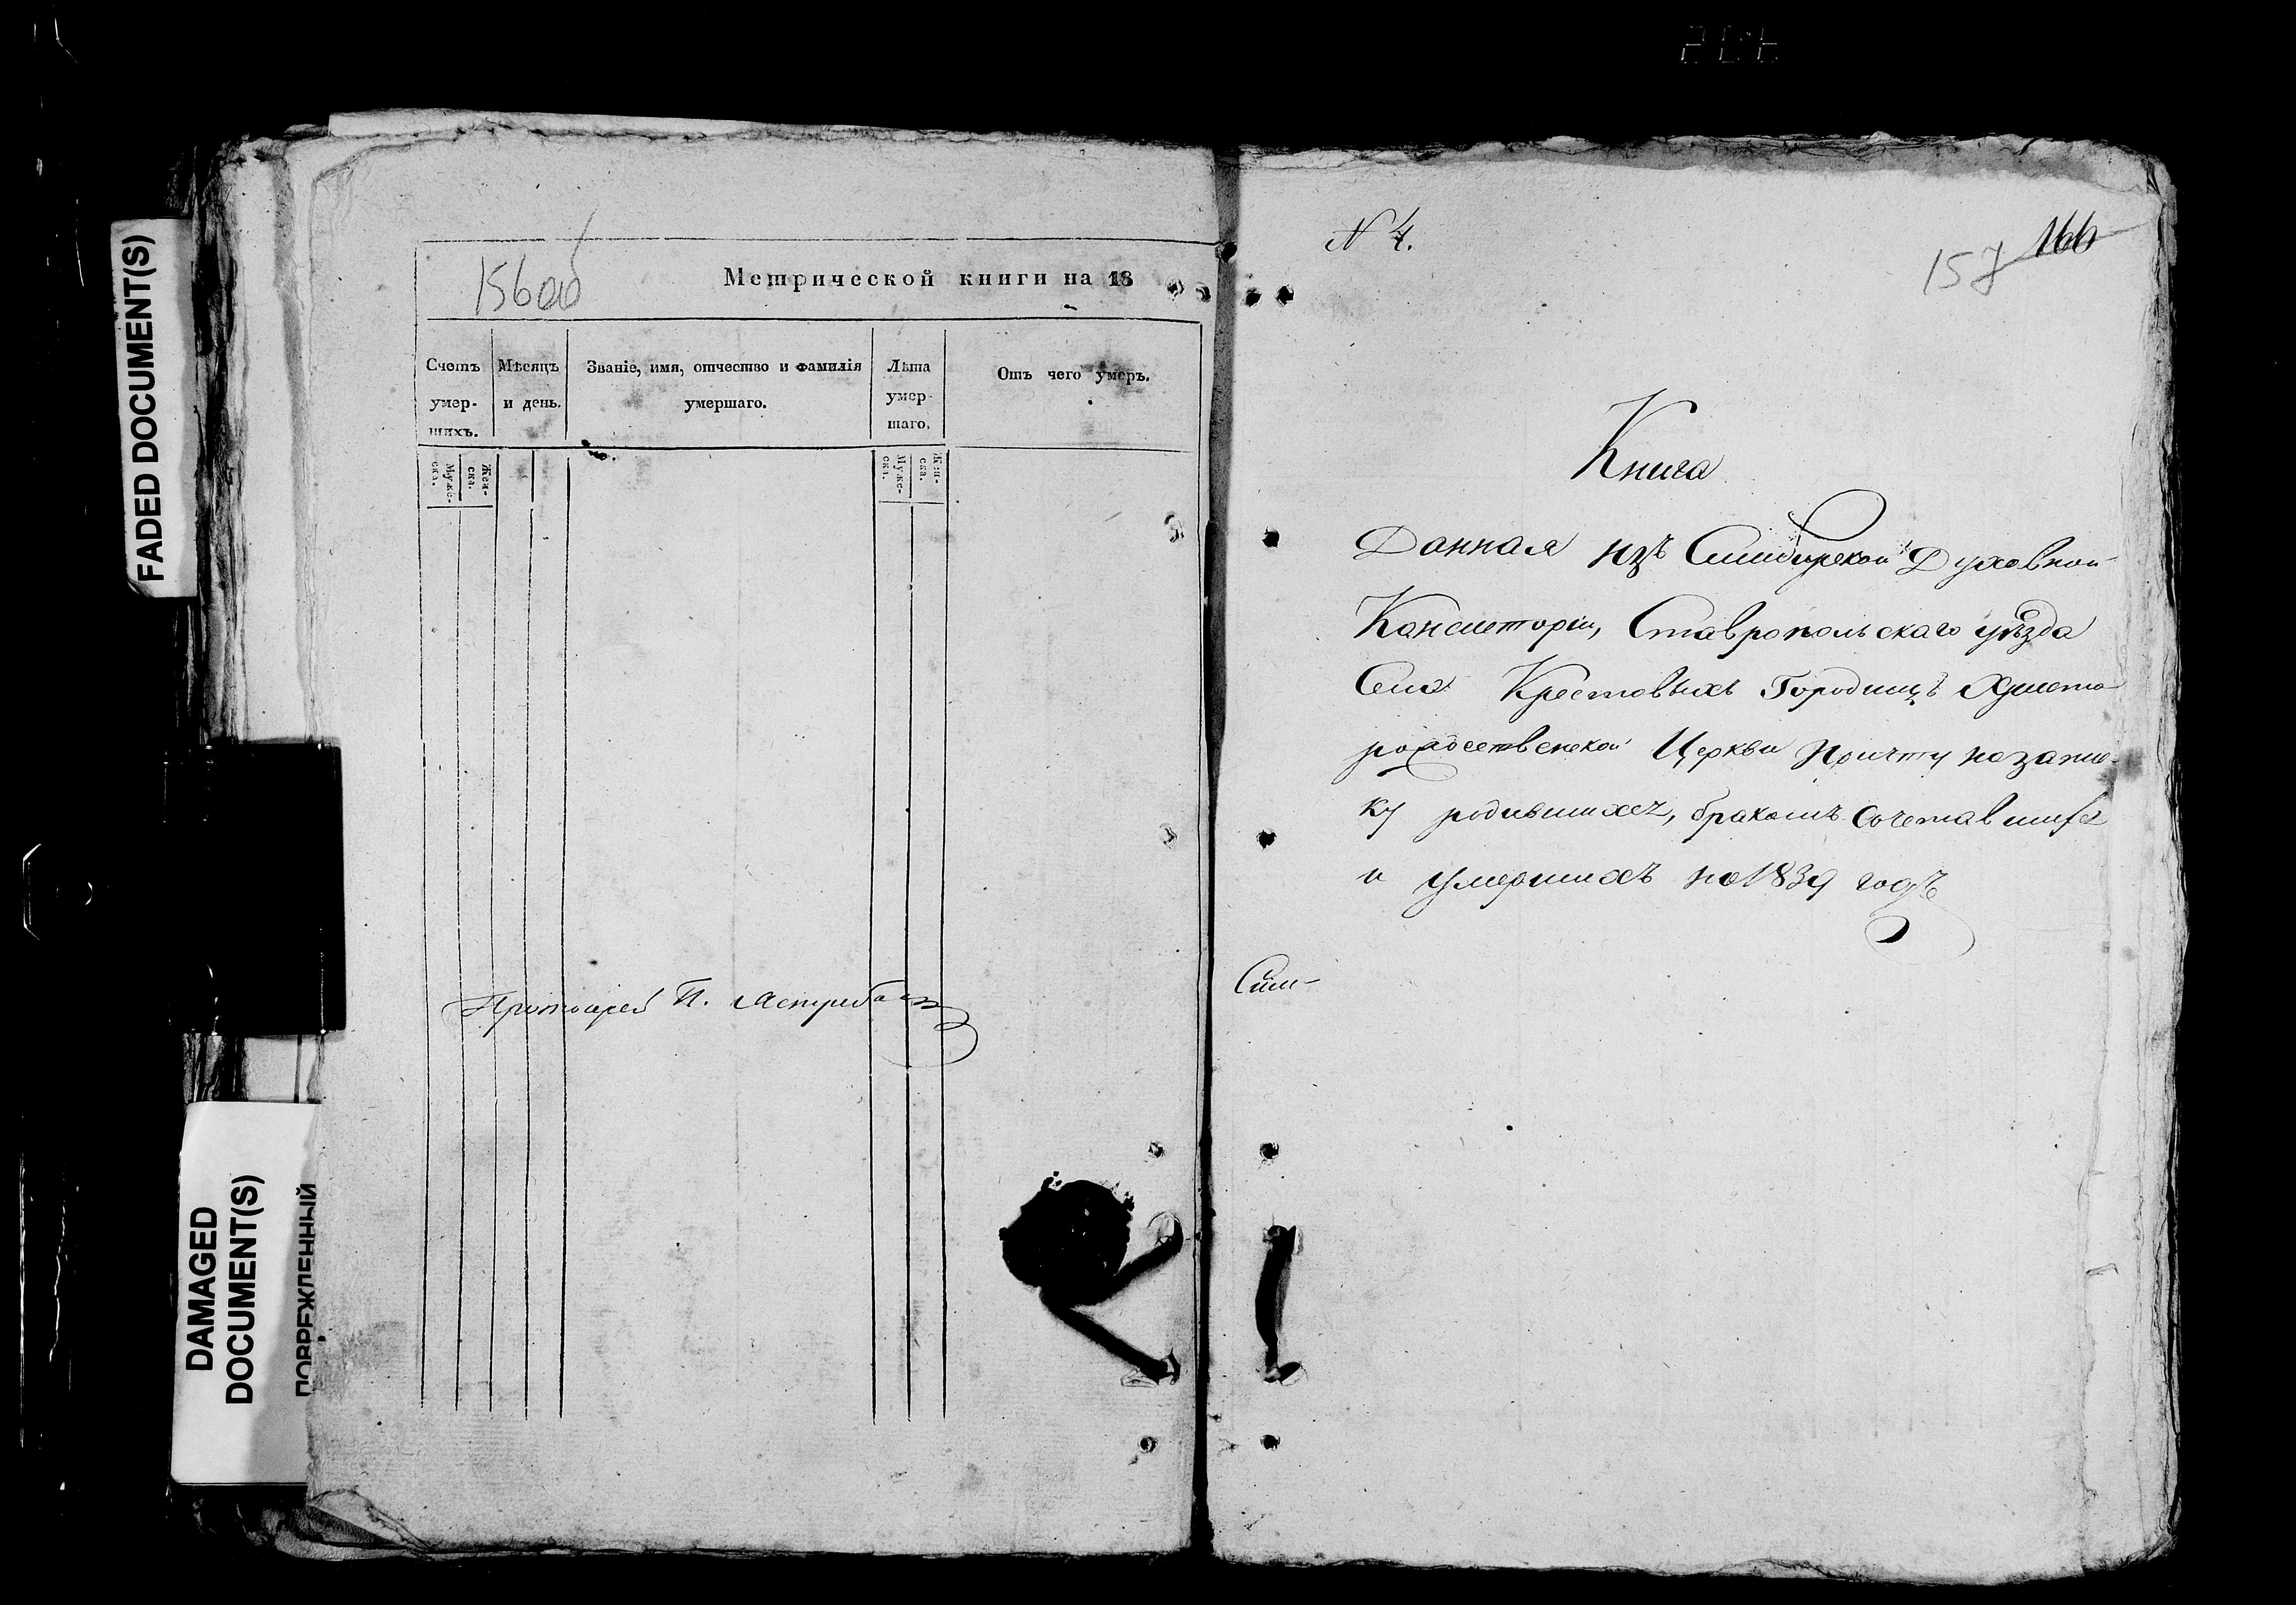 FADED DOCUMENT(S)
DAMAGED
DOCUMENT(S)
ПОВРЕЖДЕННЫЙ
156об
Метрической книги на 18
Счетъ умер- шихъ.
Мѣсяцъ и день.
Званіе, имя, отчество и фамилія умершаго.
Лѣта умер- шаго.
Отъ чего умеръ.
Муже- ска.
Жен- ска.
Муже- ска.
Жен- ска.
Протоіерей П.
N 4.
157 166
Книга
Данная изъ Симбирской Духовной
Консисторіи, Ставропольскаго уѣзда
Села Крестовыхъ Городищъ Христо
рождественской Церкви Причту на запис
ку родившихся, бракомъ сочетавшихся
и умершихъ на 1839 годъ
Сим-